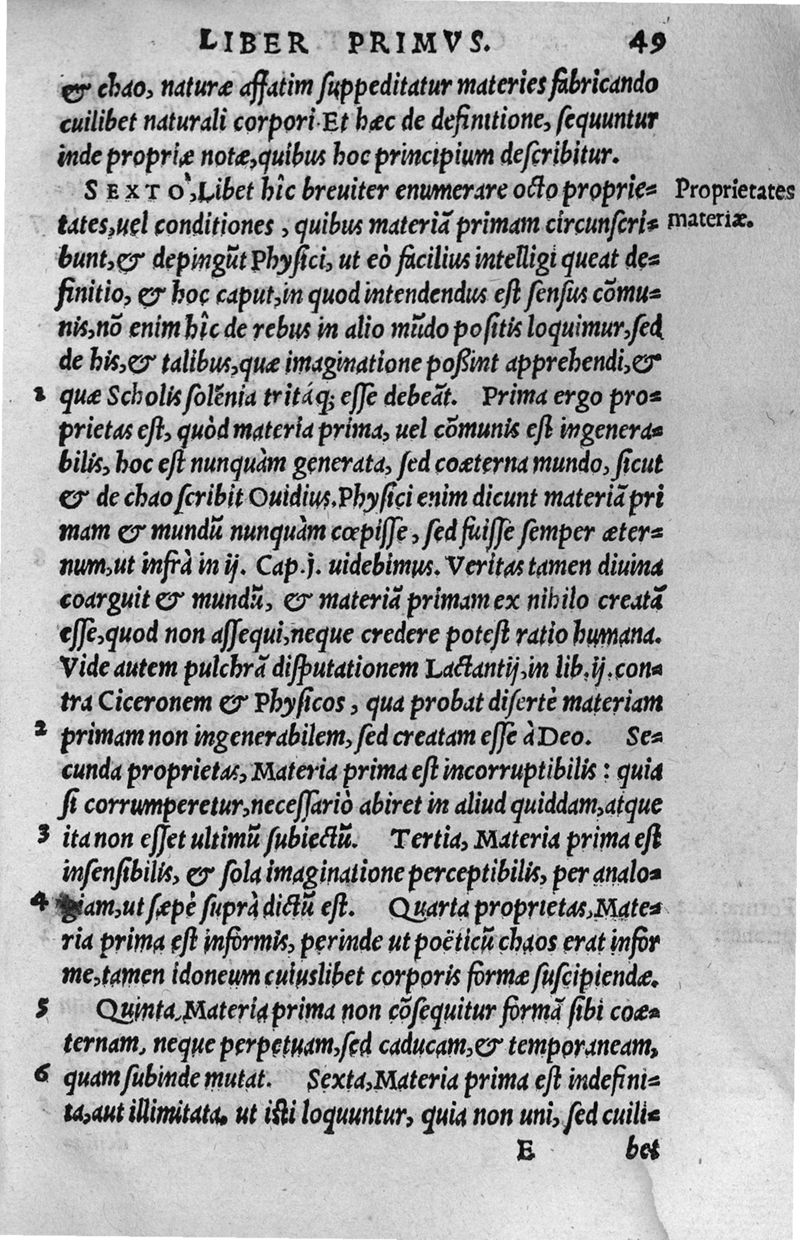 LIBER PRIMVS. 49
& chao, naturæ affatim ſuppeditatur materies fabricando
cuilibet naturali corpori. Et hæc de definitione, ſequuntur
inde propriæ notæ, quibus hoc principium deſcribitur.
SEXTO`, Libet hîc breuiter enumerare octo proprie=
Proprietates
tates, uel conditiones, quibus materiã primam circunſcri=
materiæ.
bunt, & depingũt Phyſici, ut eò facilius intelligi queat de=
finitio, & hoc caput, in quod intendendus eſt ſenſus cõmu=
nis, nõ enim hîc de rebus in alio mũdo poſitis loquimur, ſed
de his, & talibus, quæ imaginatione poßint apprehendi, &
1 quæ Scholis ſolẽnia tritáq; eſſe debeãt. Prima ergo pro=
prietas eſt, quòd materia prima, uel cõmunis eſt ingenera=
bilis, hoc eſt nunquàm generata, ſed coæterna mundo, ſicut
& de chao ſcribit Ouidius. Phyſici enim dicunt materiã pri
mam & mundũ nunquàm cœpiſſe, ſed fuiſſe ſemper æter=
num, ut infrà in ij. Cap. j. uidebimus. Veritas tamen diuina
coarguit & mundũ, & materiã primam ex nihilo creatã
eſſe, quod non aſſequi, neque credere poteſt ratio humana.
Vide autem pulchrã diſputationem Lactantij, in lib. ij. con=
tra Ciceronem & Phyſicos, qua probat diſertè materiam
2 primam non ingenerabilem, ſed creatam eſſe à Deo. Se=
cunda proprietas, Materia prima eſt incorruptibilis: quia
ſi corrumperetur, neceſſariò abiret in aliud quiddam, atque
3 ita non eſſet ultimũ ſubiectũ. Tertia, Materia prima eſt
inſenſibilis, & ſola imaginatione perceptibilis, per analo=
4 giam, ut ſæpè ſuprà dictũ eſt. Quarta proprietas, Mate=
ria prima eſt informis, perinde ut poëticũ chaos erat infor
me, tamen idoneum cuiuslibet corporis formæ ſuſcipiendæ.
5 Quinta, Materia prima non cõſequitur formã ſibi coæ=
ternam, neque perpetuam, ſed caducam, & temporaneam,
6 quam ſubinde mutat. Sexta, Materia prima eſt indefini=
ta, aut illimitata, ut iſti loquuntur, quia non uni, ſed cuili=
E bet